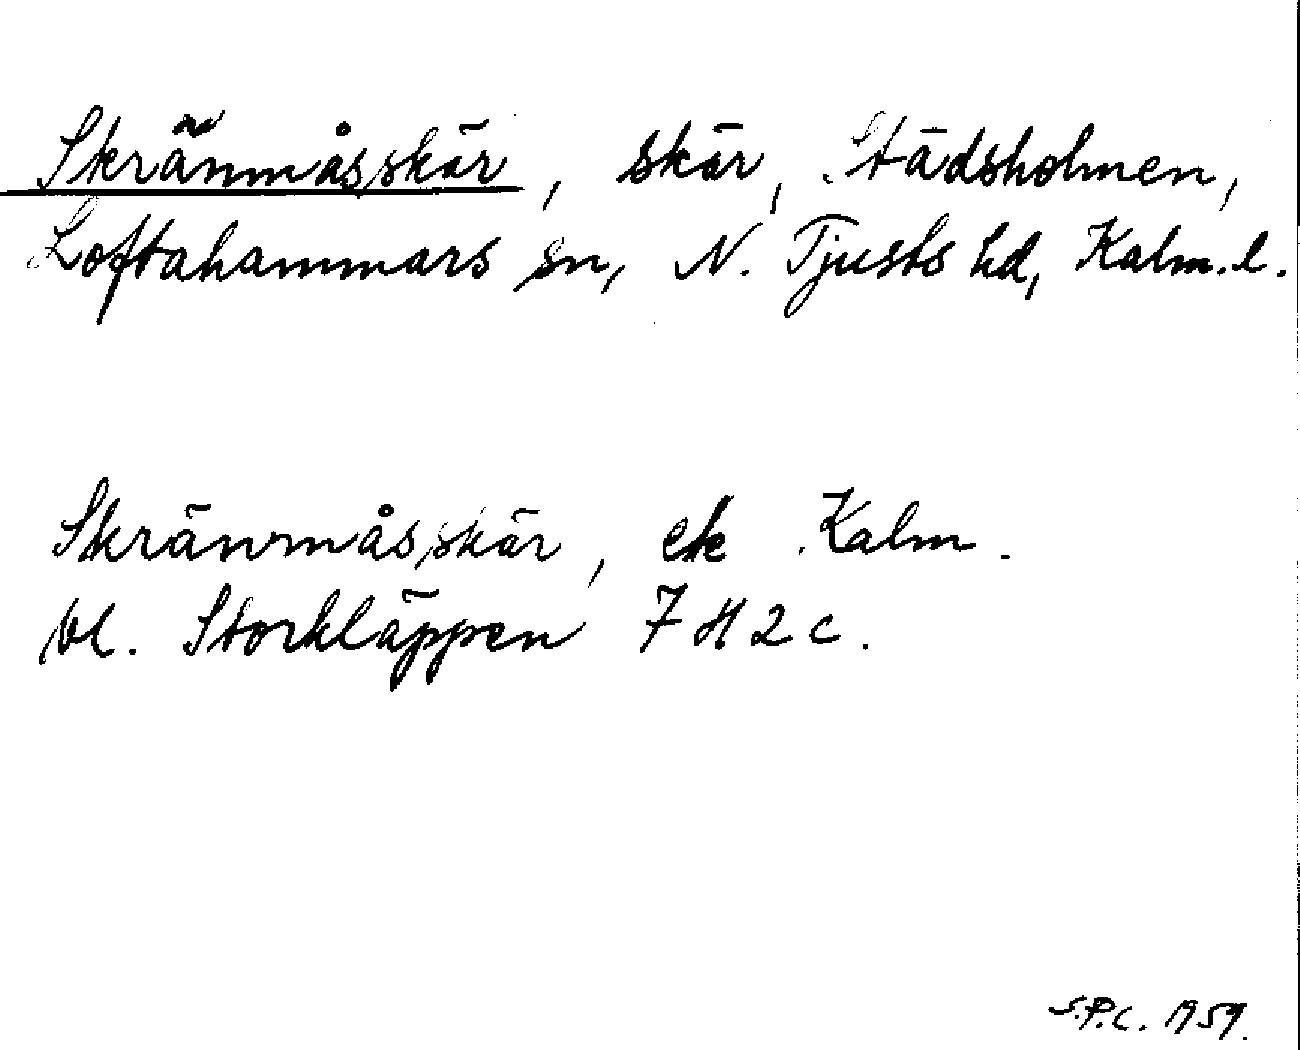 Skränmåsskär, skär, Städsholmen,
Loftahammars sn, N. Tjusts hd, Kalm. l.
Skränmåsskär, ek Kalm.
bl. Storkläppen 7 H 2 c.
S.P.C. 1959.